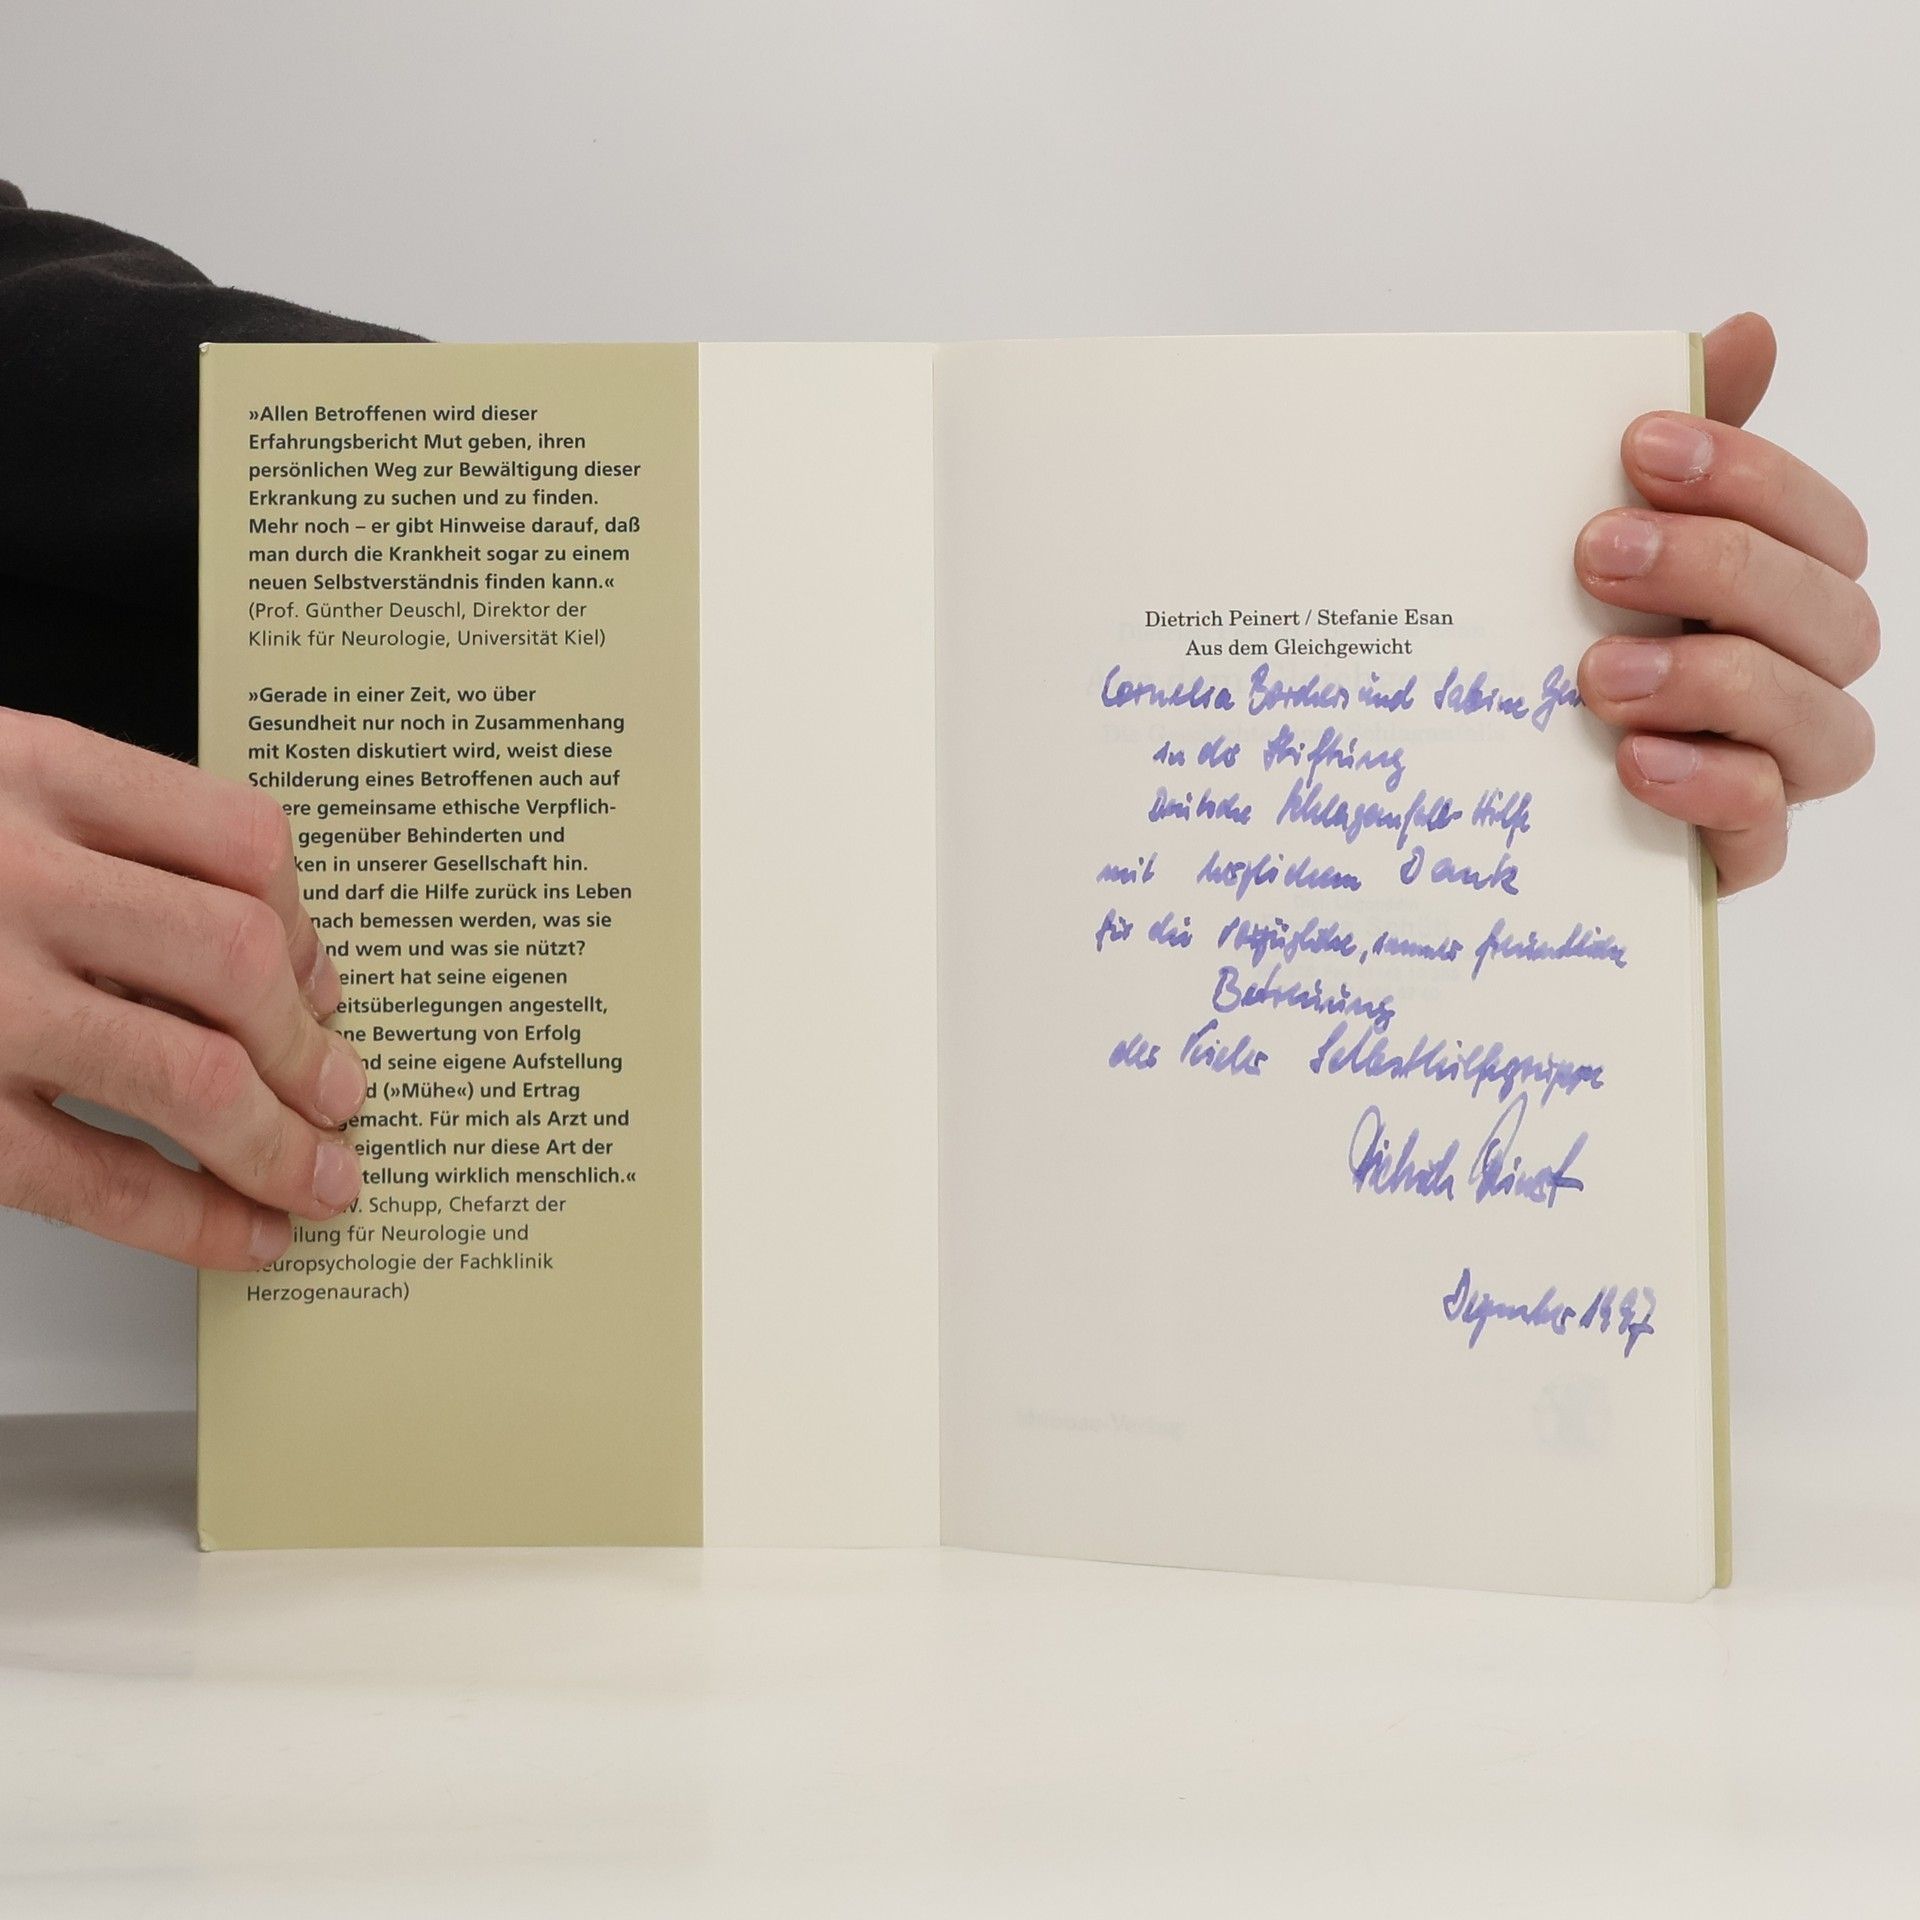 »Allen Betroffenen wird dieser
Erfahrungsbericht Mut geben, ihren
persönlichen Weg zur Bewältigung dieser
Erkrankung zu suchen und zu finden.
Mehr noch – er gibt Hinweise darauf, daß
man durch die Krankheit sogar zu einem
neuen Selbstverständnis finden kann.«
(Prof. Günther Deuschl, Direktor der
Klinik für Neurologie, Universität Kiel)
»Gerade in einer Zeit, wo über
Gesundheit nur noch in Zusammenhang
mit Kosten diskutiert wird, weist diese
Schilderung eines Betroffenen auch auf
ere gemeinsame ethische Verpflich-
gegenüber Behinderten und
ken in unserer Gesellschaft hin.
und darf die Hilfe zurück ins Leben
nach bemessen werden, was sie
nd wem und was sie nützt?
einert hat seine eigenen
eitsüberlegungen angestellt,
ne Bewertung von Erfolg
nd seine eigene Aufstellung
d (»Mühe«) und Ertrag
gemacht. Für mich als Arzt und
eigentlich nur diese Art der
tellung wirklich menschlich.«
W. Schupp, Chefarzt der
ilung für Neurologie und
europsychologie der Fachklinik
Herzogenaurach)
Dietrich Peinert / Stefanie Esan
Aus dem Gleichgewicht
Cornelia Borchers und Sabine
in der Stiftung
Deutsche Schlaganfall-Hilfe
mit herzlichem Dank
für die vorzügliche, immer freundliche
Betreuung
der Kieler Selbsthilfegruppe
Dietrich Peinert
Dezember 1997